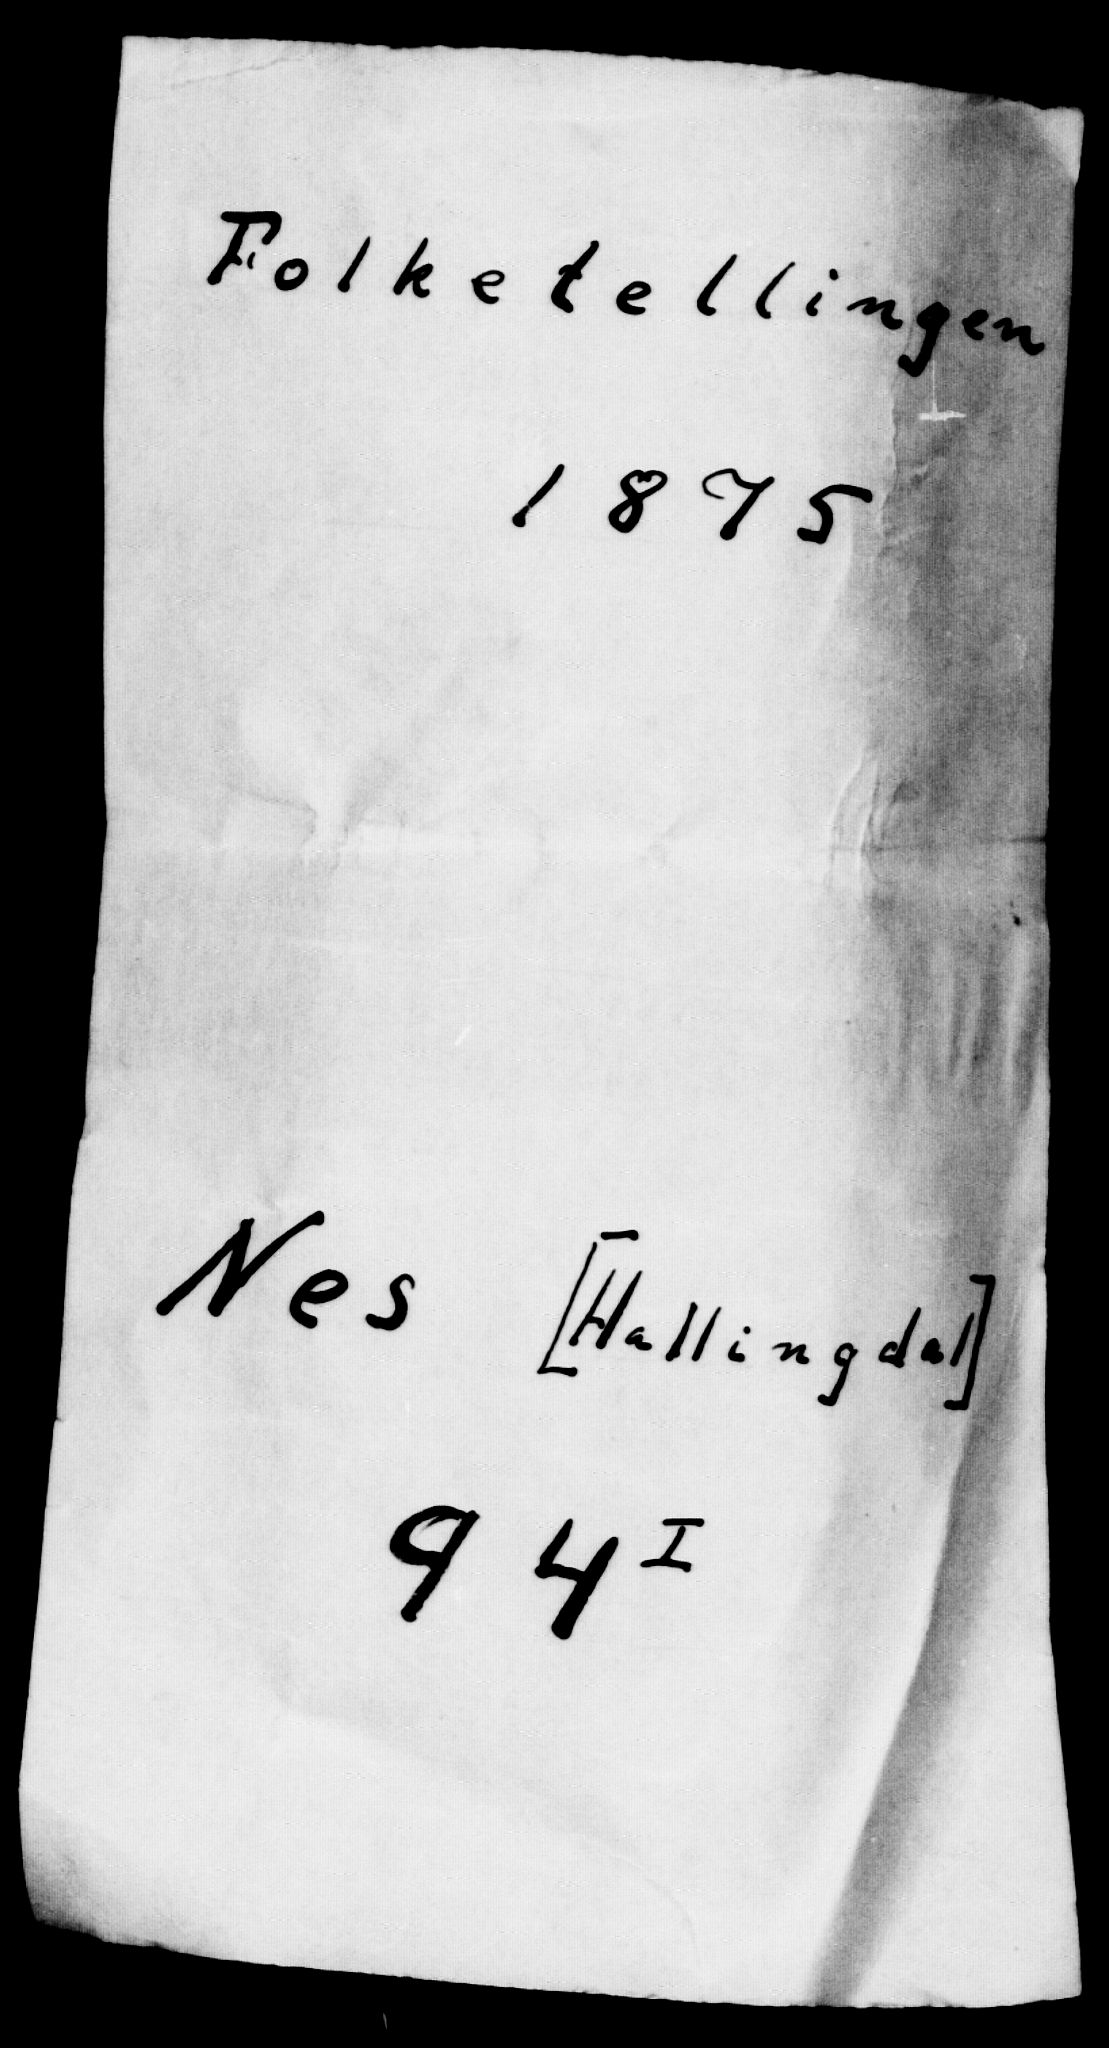 Folketellingen
1875
Nes [Hallingdal]
94 I